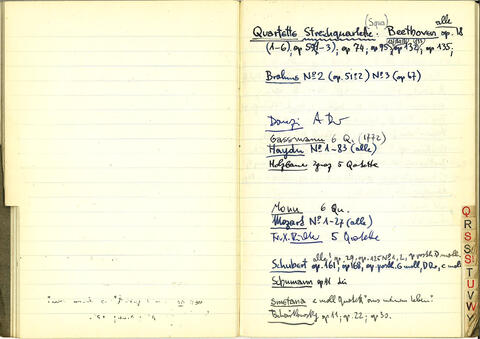 alle
(Squa)
Quartette Streichquartette: Beethoven op. 18
(1-6), op 59(1-3), op 74, op 95, op 132, op 135,
Brahms No 2 (op. 51 2) No 3 (op 67)
Danzi A Dur
Gassmann 6 Q. (1772)
Haydn No 1-83 (alle)
5 Qutette
Monn 6 Qu.
Mozart No 1-27 (alle)
Fr. X. Richter 5 Qutette
alle! op. 29, op. 125 No 1, 2, op posth. D moll
Schubert op. 161, op 168, op. posth. G moll, D Dur, c moll
Schumann op 41
Smetana e moll Quartett "aus meinem Leben"
Tschaikowsky op 11, op. 22, op 30.
Q
R
S
S
T
U
V
W